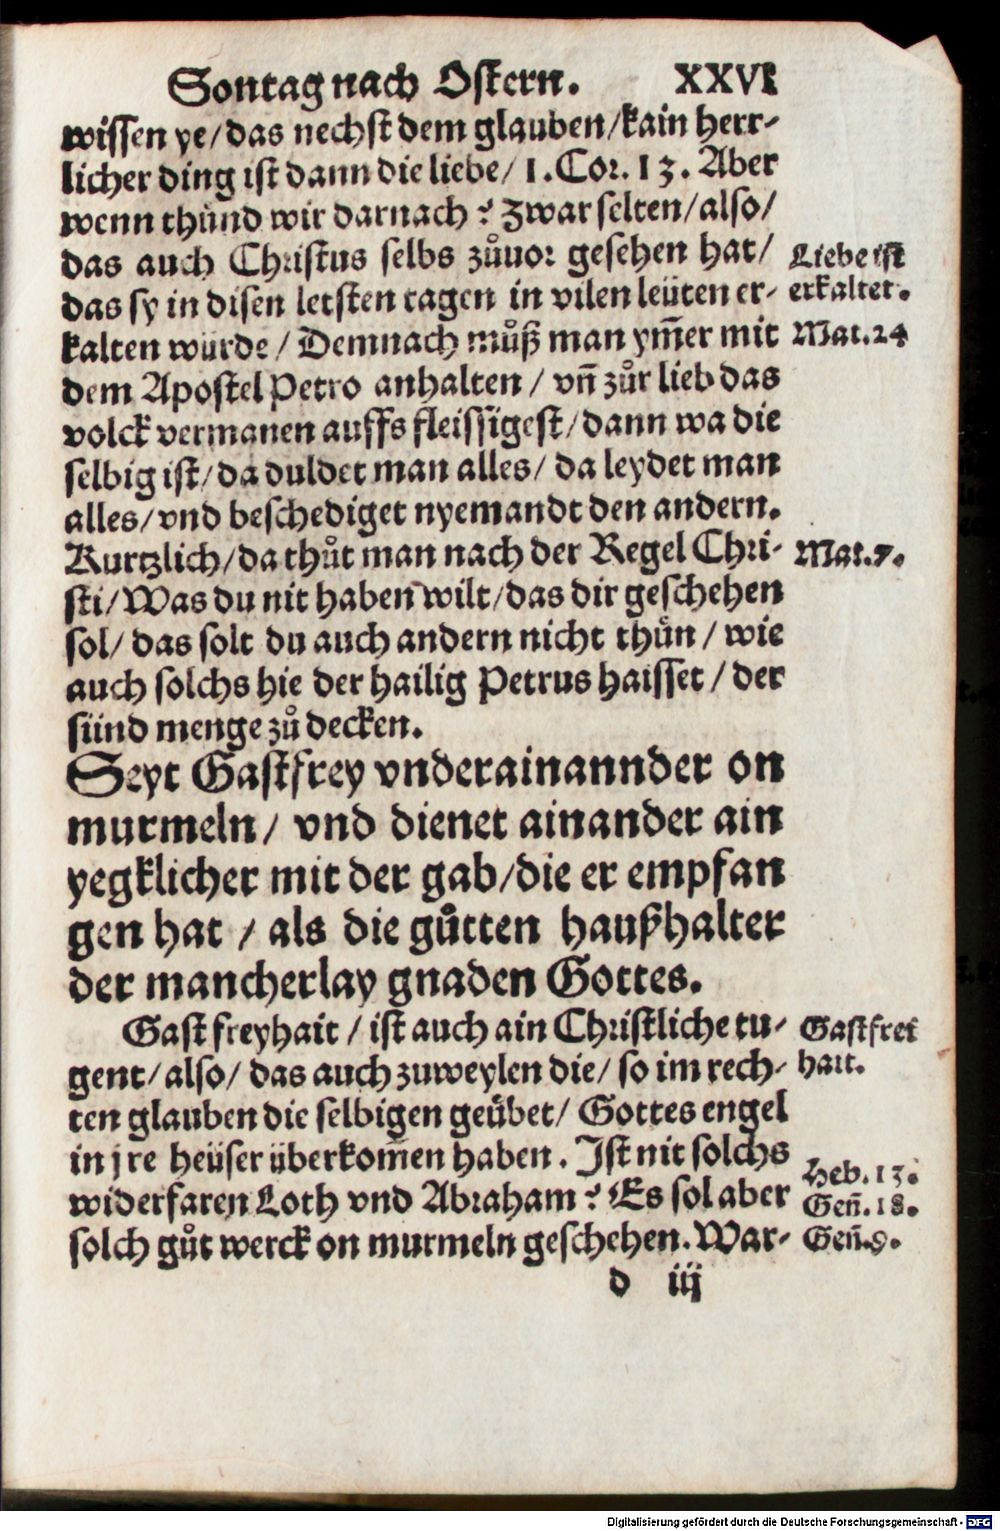 Sontag nach Ostern. XXVI
wissen ye/das nechst dem glauben/kain herr-
licher ding ist dann die liebe/ 1.Cor.13. Aber
wenn thünd wir darnach? Zwar selten/also/
das auch Christus selbs zůuor gesehen hat/
das sy in disen letsten tagen in vilen leüten er-
kalten wurde/ Demnach můß man ym̃er mit
dem Apostel Petro anhalten/ vñ zůr lieb das
volck vermanen auffs fleissigest/dann wa die
selbig ist/da duldet man alles/ da leydet man
alles/vnd beschediget nyemandt den andern.
Kurtzlich/da thůt man nach der Regel Chri-
sti/Was du nit haben wilt/das dir geschehen
sol/ das solt du auch andern nicht thůn/ wie
auch solchs hie der hailig Petrus haisset/ der
sünd menge zů decken.
Seyt Gastfrey vnderainannder on
murmeln/ vnd dienet ainander ain
yegklicher mit der gab/die er empfan
gen hat/ als die gůtten haußhalter
der mancherlay gnaden Gottes.
Gastfreyhait/ ist auch ain Christliche tu-
gent/also/ das auch zuweylen die/ so im rech-
ten glauben die selbigen geübet/ Gottes engel
in jre heüser überkom̃en haben. Ist nit solchs
widerfaren Loth vnd Abraham? Es sol aber
solch gůt werck on murmeln geschehen. War-
d iij
Liebe ist
erkaltet.
Mat.24
Mat.7.
Gastfrei
hait.
Heb.13.
Geñ.18.
Geñ.9.
Digitalisierung gefördert durch die Deutsche Forschungsgemeinschaft - DFG